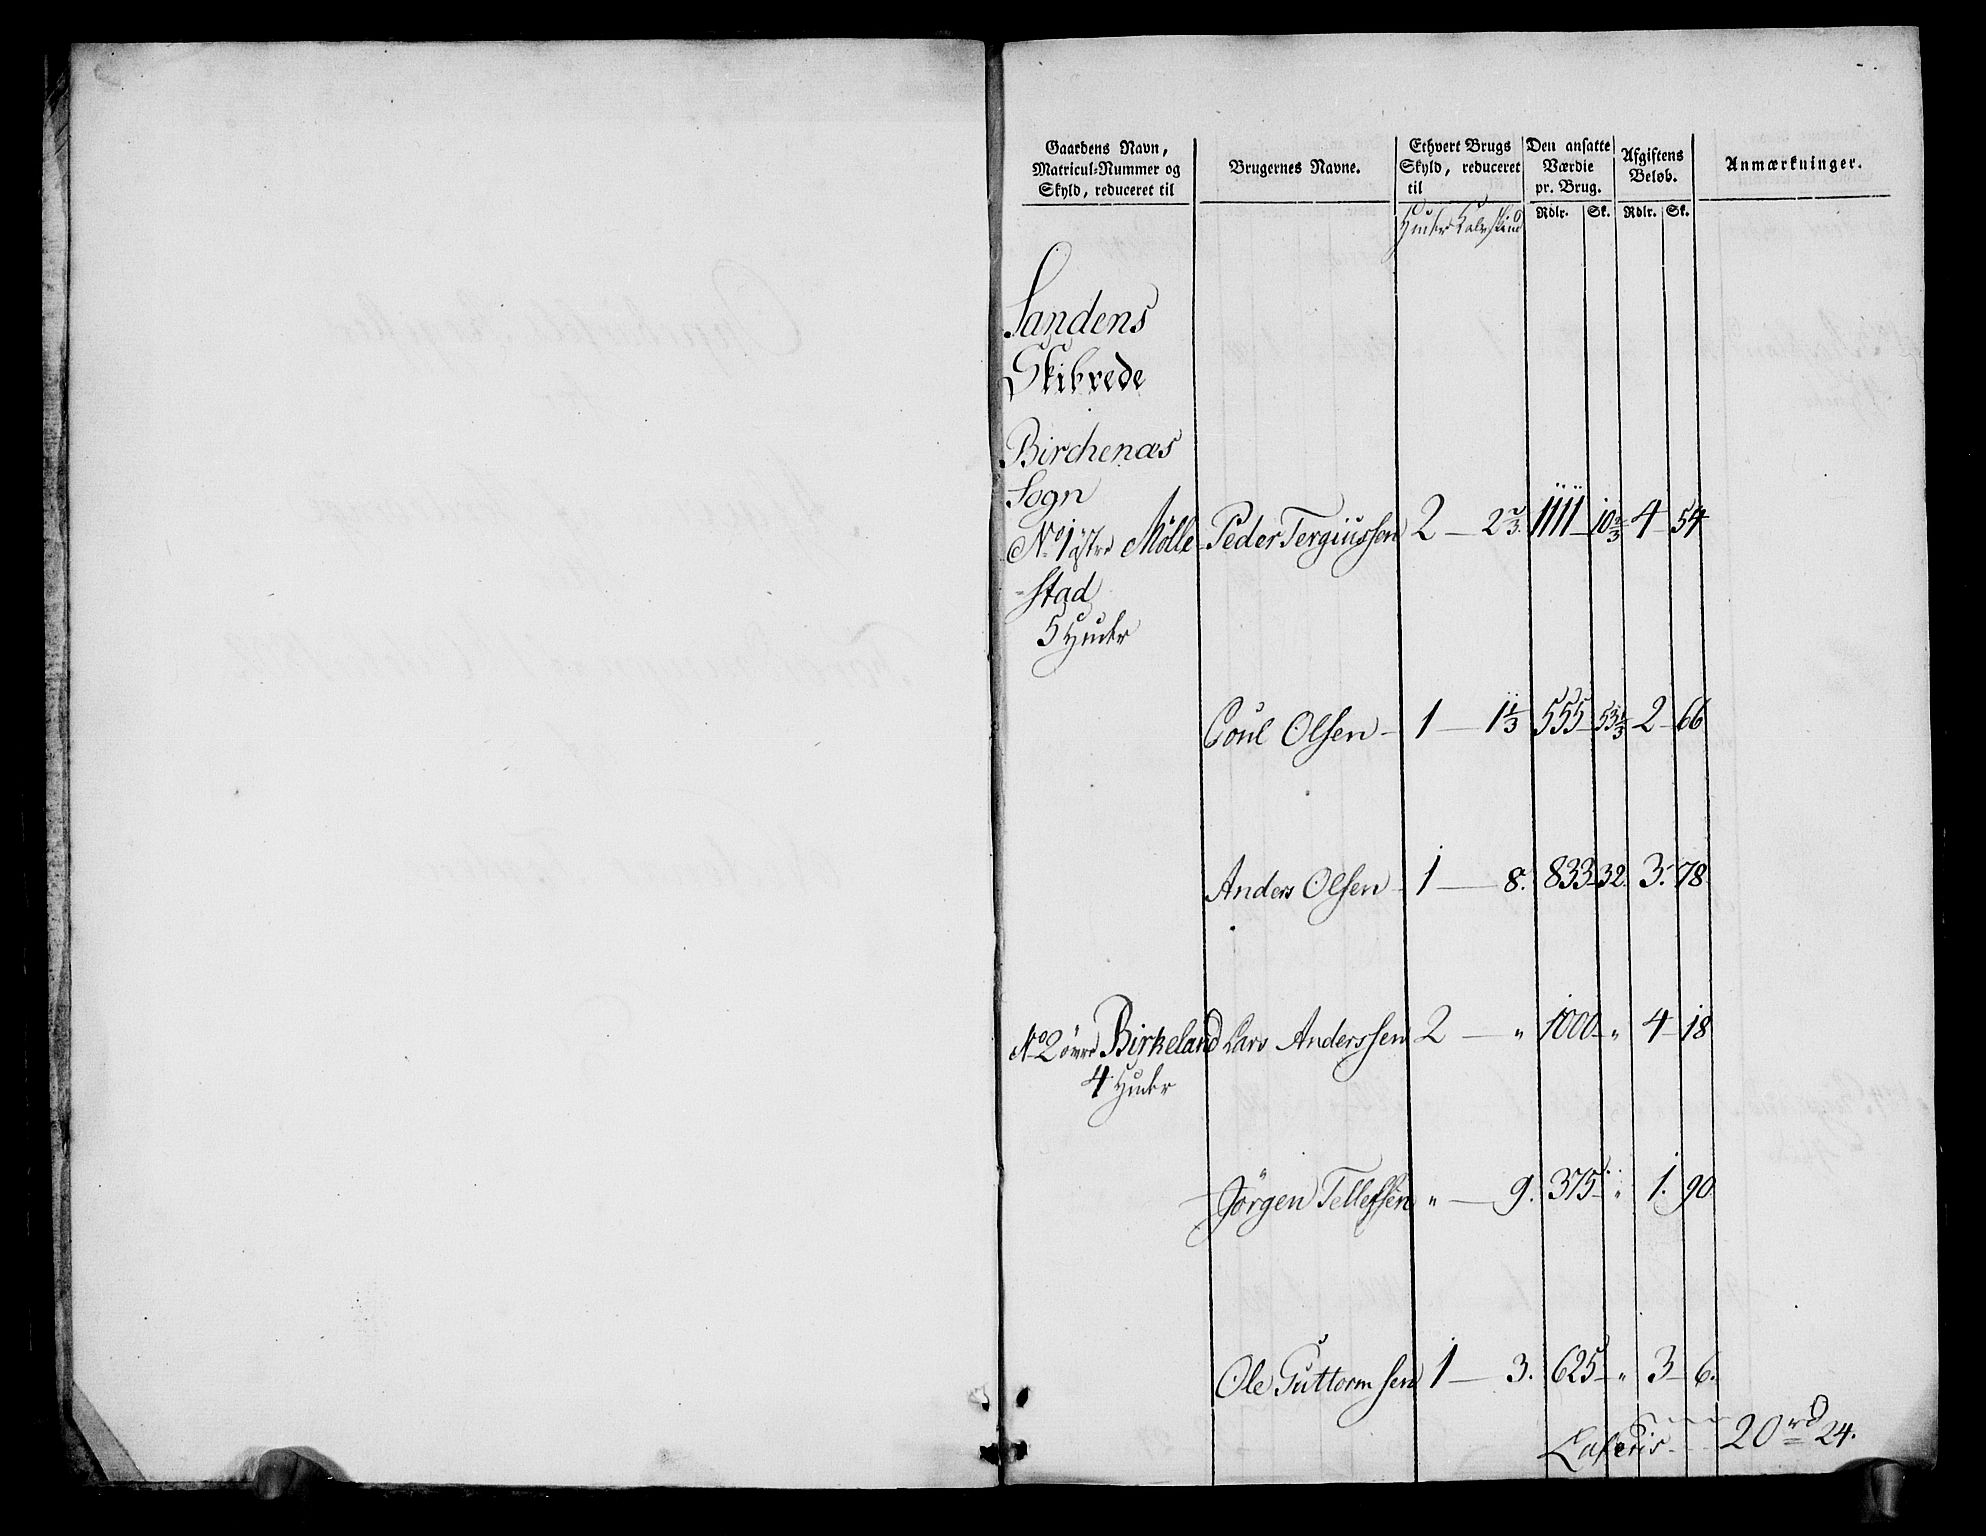 Gaardens Navn, Matricul-Nummer og Skyld, reduceret til | Brugernes Navne. | Ethvert Brugs Skyld, reduceret til | Den ansatte Værdie pr. Brug. | Afgiftens Beløb. | Anmærkninger.
Huder Kalvskind | Rdlr. | Sk. | Rdlr. | Sk.
Sandens
Skibrede
Birchenæs
Sogn
No 1 østre Mölle- Peder Tergiussen 2 — 2 2/3. 1111 10 2/3 4 54
stad
5 Huder
Poul Olsen — 1 — 1 1/3 555 53 1/3 2 66
Anders Olsen — 1 — 8. 833 32. 3. 78
No 2 övre Birkeland Lars Anderssen 2 — " 1000 " 4 18
4 Huder
Jörgen Tellefsen " — 9. 375 " 1. 90
Ole Guttormsen 1 — 3. 625 " 3 6.
Lateris 20 rd 24.